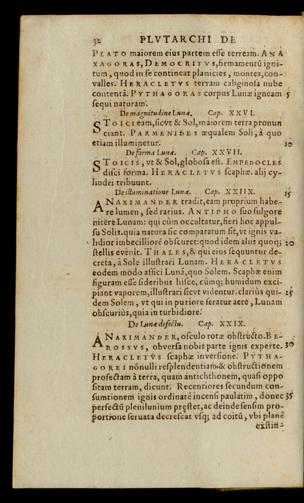 32 PLVTARCHI DE
PLATO maiorem eius partem esse terream. ANA
XAGORAS, DEMOCRITVS, firmamentú igni-
tum, quod in se contineat planicies, montes, con-
valles. HERACLETVS terram caliginosa nube
contentá. PYTHAGORAS corpus Lunæ igneam 5
sequi naturam.
De magnitudine Lunæ. Cap. XXVI.
STOICI eam, sicvt & Sol, maiorem terra pronun
ciant. PARMENIDES æqualem Soli, à quo
etiam illuminetur. 10
De forma Lunæ. Cap. XXVII.
STOICIS, vt & Sol, globosa est. EMPEDOCLES
disci forma. HERACLETVS scaphæ. alij cy-
lindri tribuunt.
De illuminatione Lunæ. Cap. XXIIX. 15
ANAXIMANDER tradit, eam proprium habe-
re lumen, sed rarius. ANTIPHO suo fulgore
nitère Lunam: qui cùm occultetur, fieri hoc appul-
su Solis. quia natura sic comparatum sit, vt ignis va-
lidior imbecilliorē obscuret: quod idem aliis quoqi 20
stellis evènit. THALES, & qui eius sequuntur de-
creta, à Sole illustrari Lunam. HERACLETVS
eodem modo affici Lunā, quo Solem. Scaphæ enim
figuram esse sideribus hisce, cùmq; humidum exci-
piant vaporem, illustrari sicvt videntur. clariùs qui- 25
dem Solem, vt qui in puriore feratur aere, Lunam
obscuriùs, quia in turbidiore.
De Lunæ defectu. Cap. XXIX.
ANAXIMANDER, osculo rotæ obstructo. BE-
ROSSVS, obversa nobis parte ignis experte. 30
HERACLETVS scaphæ inversione. PYTHA-
GOREI nónulli resplendentiam & obstructionem
profectam à terra, quam antichthonem, quasi oppo
sitam terram, dicunt. Recentiores secundum con-
sumtionem ignis ordinatè incensi paulátim, donec 35
perfectū plenilunium pręstet, ac deinde sensim pro-
portione servata decrescat vsq; ad coitū, vbi planè
exstin-